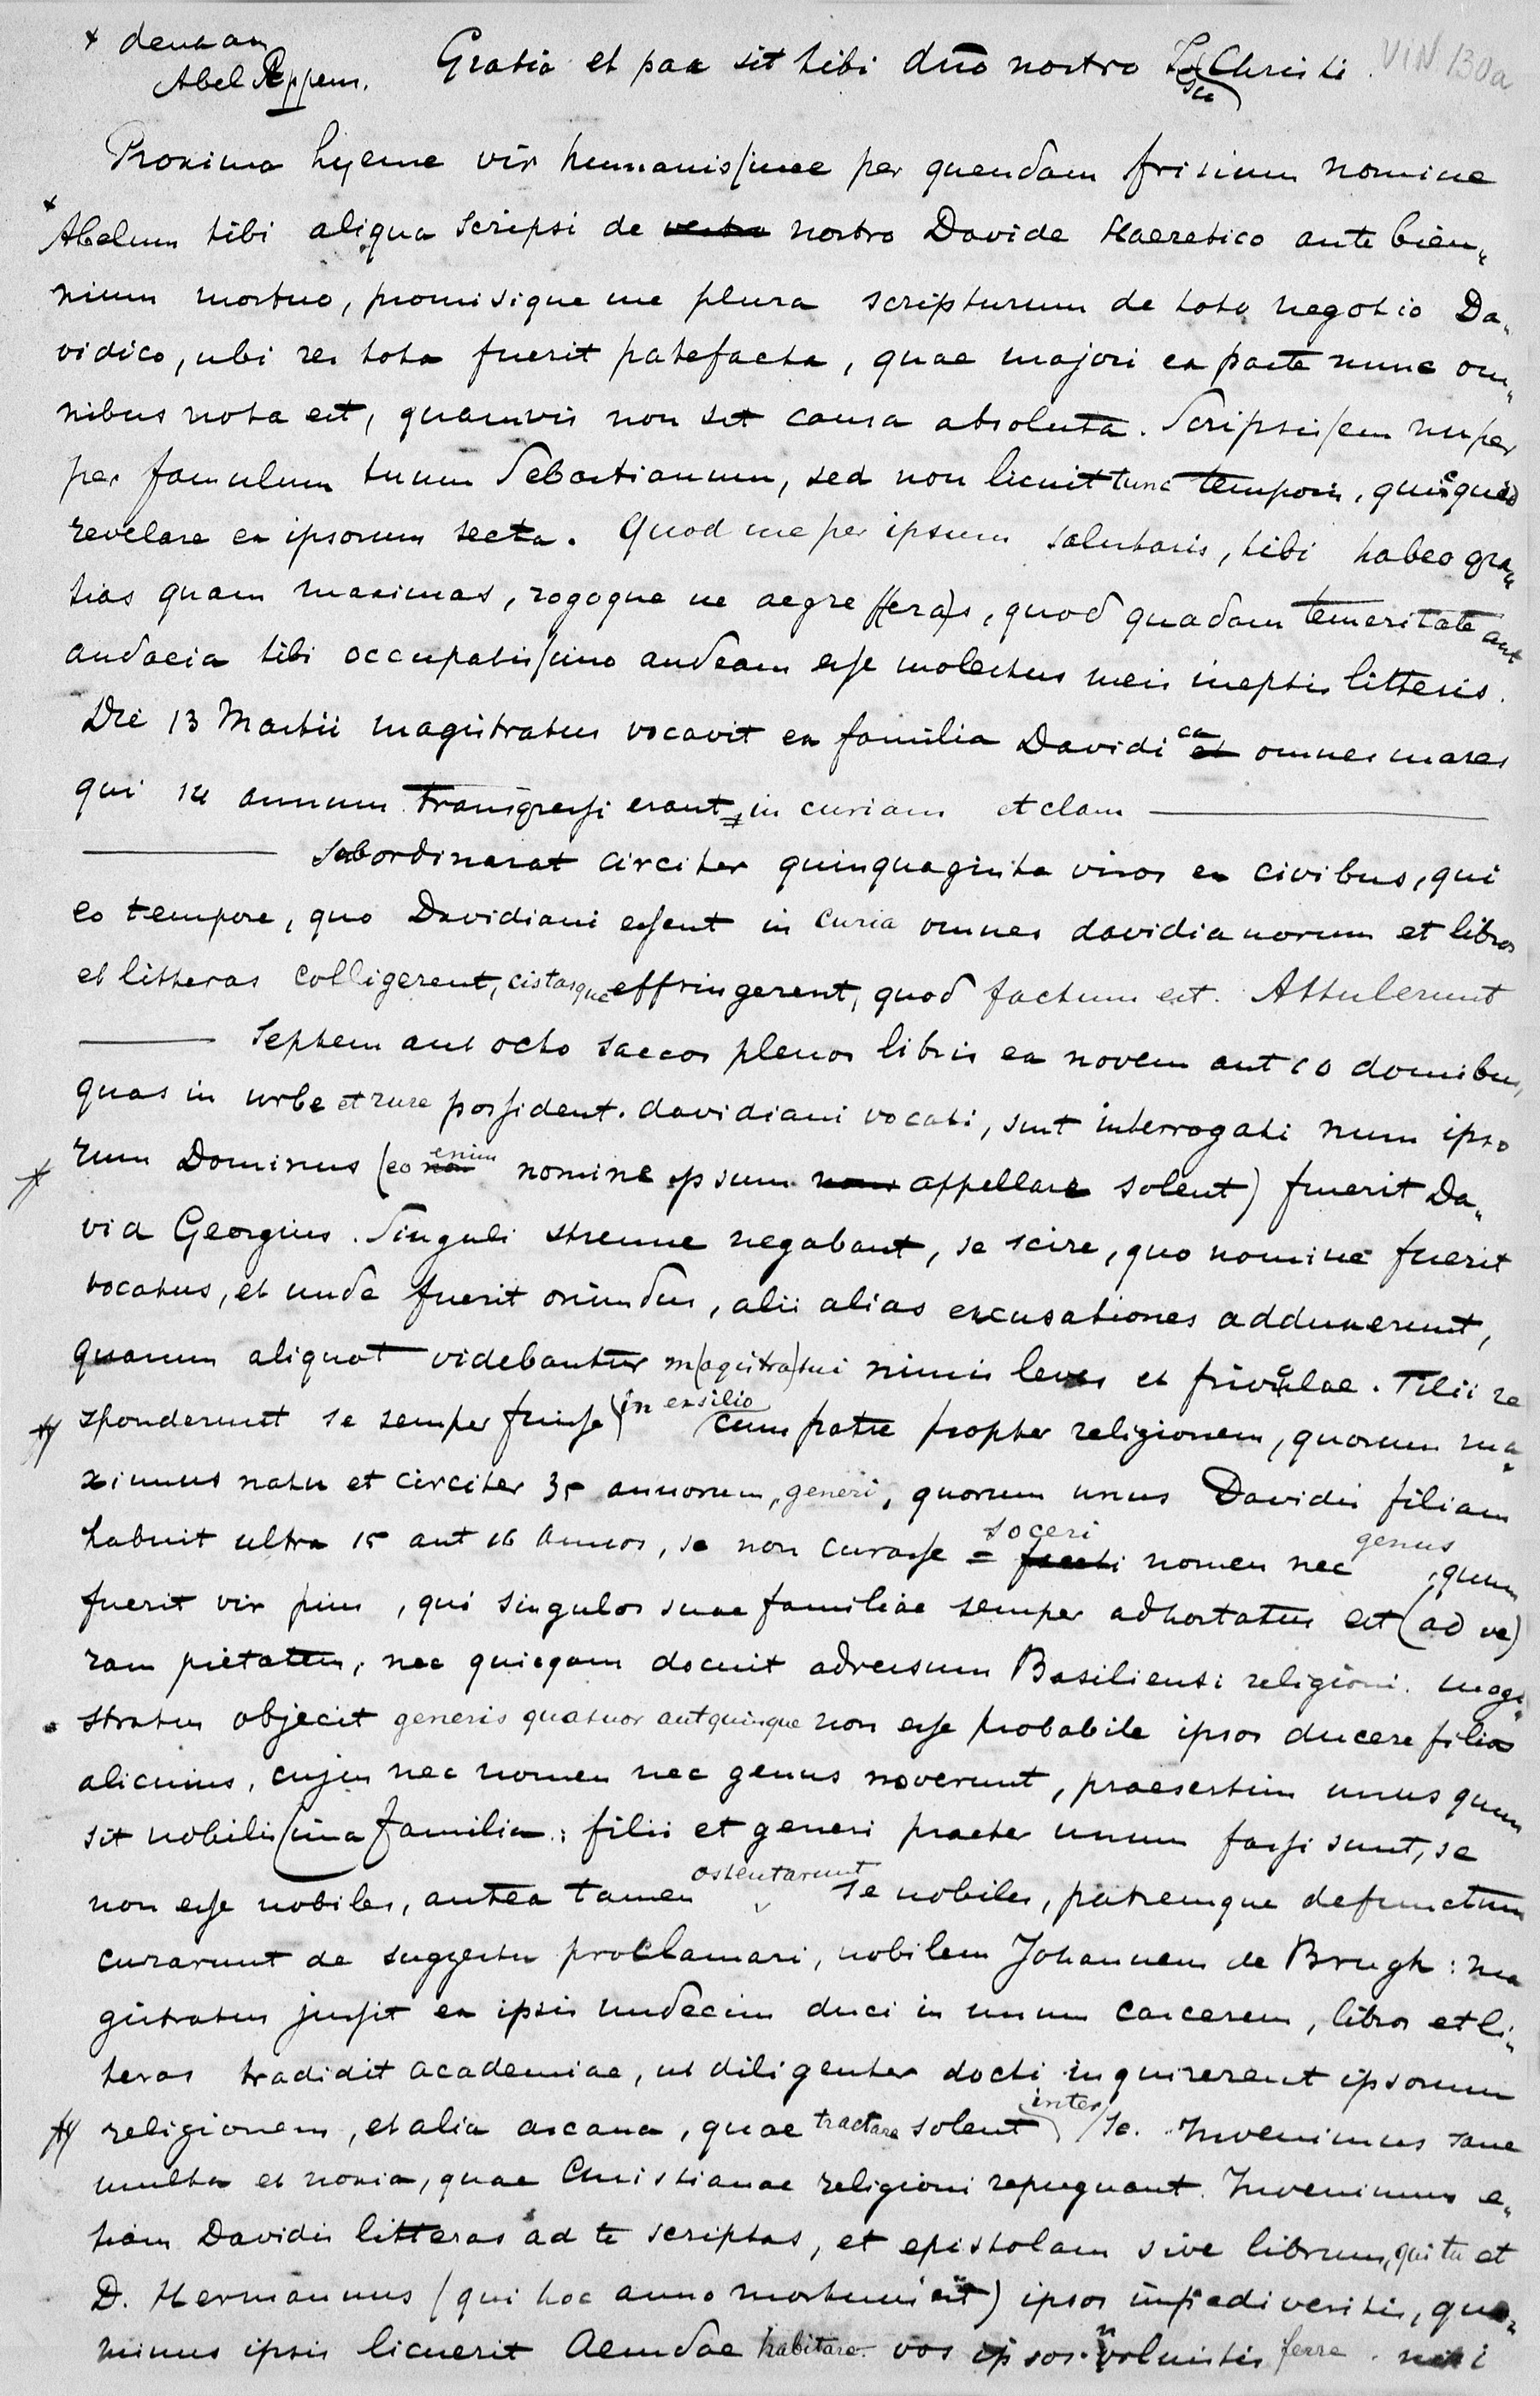 Abel Eppens.
Gratia et pax sit tibi dno nostro Jesu Christi. VIN 130a
Proxima hyeme vir humanissime per quendam frisium nomine
Abelum tibi aliqua scripsi de nostro Davide Haeretico ante bien„
nium mortuo, promisique me plura scripturum de toto negotio Da„
vidico, ubi res tota fuerit patefacta, quae majori ex parte nunc om„
nibus nota est, quamvis non sit causa absoluta. Scripsissem nuper
per famulum tuum Sebastianum, sed non licuit tunc temporis, quicquid
revelare ex ipsorum secta. Quod me per ipsum salutaris, tibi habeo gra„
tias quam maximas, rogoque ne aegre f(era)s, quod quadam temeritate aut
audacia tibi occupatissimo audeam esse molestus meis ineptis litteris.
Die 13 Martii magistratus vocavit ex familia Davidica omnes mares
qui 14 annum transgressi erant, in curiam et clam
subordinarat circiter quinquaginta viros ex civibus, qui
eo tempore, quo Davidiani essent in curia omnes davidianorum et libros
et litteras colligerent, cistasque effringerent, quod factum est. Attulerunt
septem aut octo saccos plenos libris ex novem aut 10 domibus,
quas in urbe et rure possident. davidiani vocati, sunt interrogati num ipso
rum Dominus (eo enim nomine ipsum appellare solent) fuerit Da„
vid Georgius. Singuli strenue negabant, se scire, quo nomine fuerit
vocatus, et unde fuerit oriundus, alii alias excusationes adduxerunt,
quarum aliquot videbantur m(agistra)tui nimis leves et frivolae. Filii re
sponderunt se semper fuisse in exsilio cum patre propter religionem, quorum ma„
ximus natu et circiter 35 annorum, generi, quorum unus Davidis filiam
habuit ultra 15 aut 16 annos, se non curasse soceri nomen nec genus, quum
fuerit vir pius, qui singulos suae familiae semper adhortatus est (ad ve)
ram pietatem, nec quicquam docuit adversum Basiliensi religioni. Magi„
stratus objecit generis quatuor aut quinque non esse probabile ipsos ducere filias
alicuius, cujus nec nomen nec genus noverunt, praesertim unus quum
sit nobilissima familia: filii et generi praeter unum fassi sunt, se
non esse nobiles, antea tamen ostentarunt se nobiles, patremque defunctum
curarunt de suggestu proclamari, nobilem Johannem de Brugh: ma
gistratus jussit ex ipsis undecim duci in unum carcerem, libros et li„
teras tradidit academiae, ut diligenter docti inquirerent ipsorum
religionem, et alia arcana, quae tractare solent inter se. Invenimus sane
multa et noxia, quae Christianae religioni repugnant. Invenimus e„
tiam Davidis litteras ad te scriptas, et epistolam sive librum, qui tu et
D. Hermannus (qui hoc anno mortuus est) ipsos impediveritis, quo„
minus ipsis licuerit Aemdae habitare. vos ipsos noluistis ferre. nisi